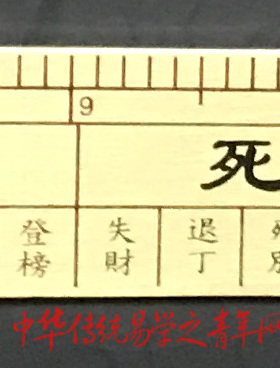 9
死
登榜
失財
退丁
中华传统易学之青年网